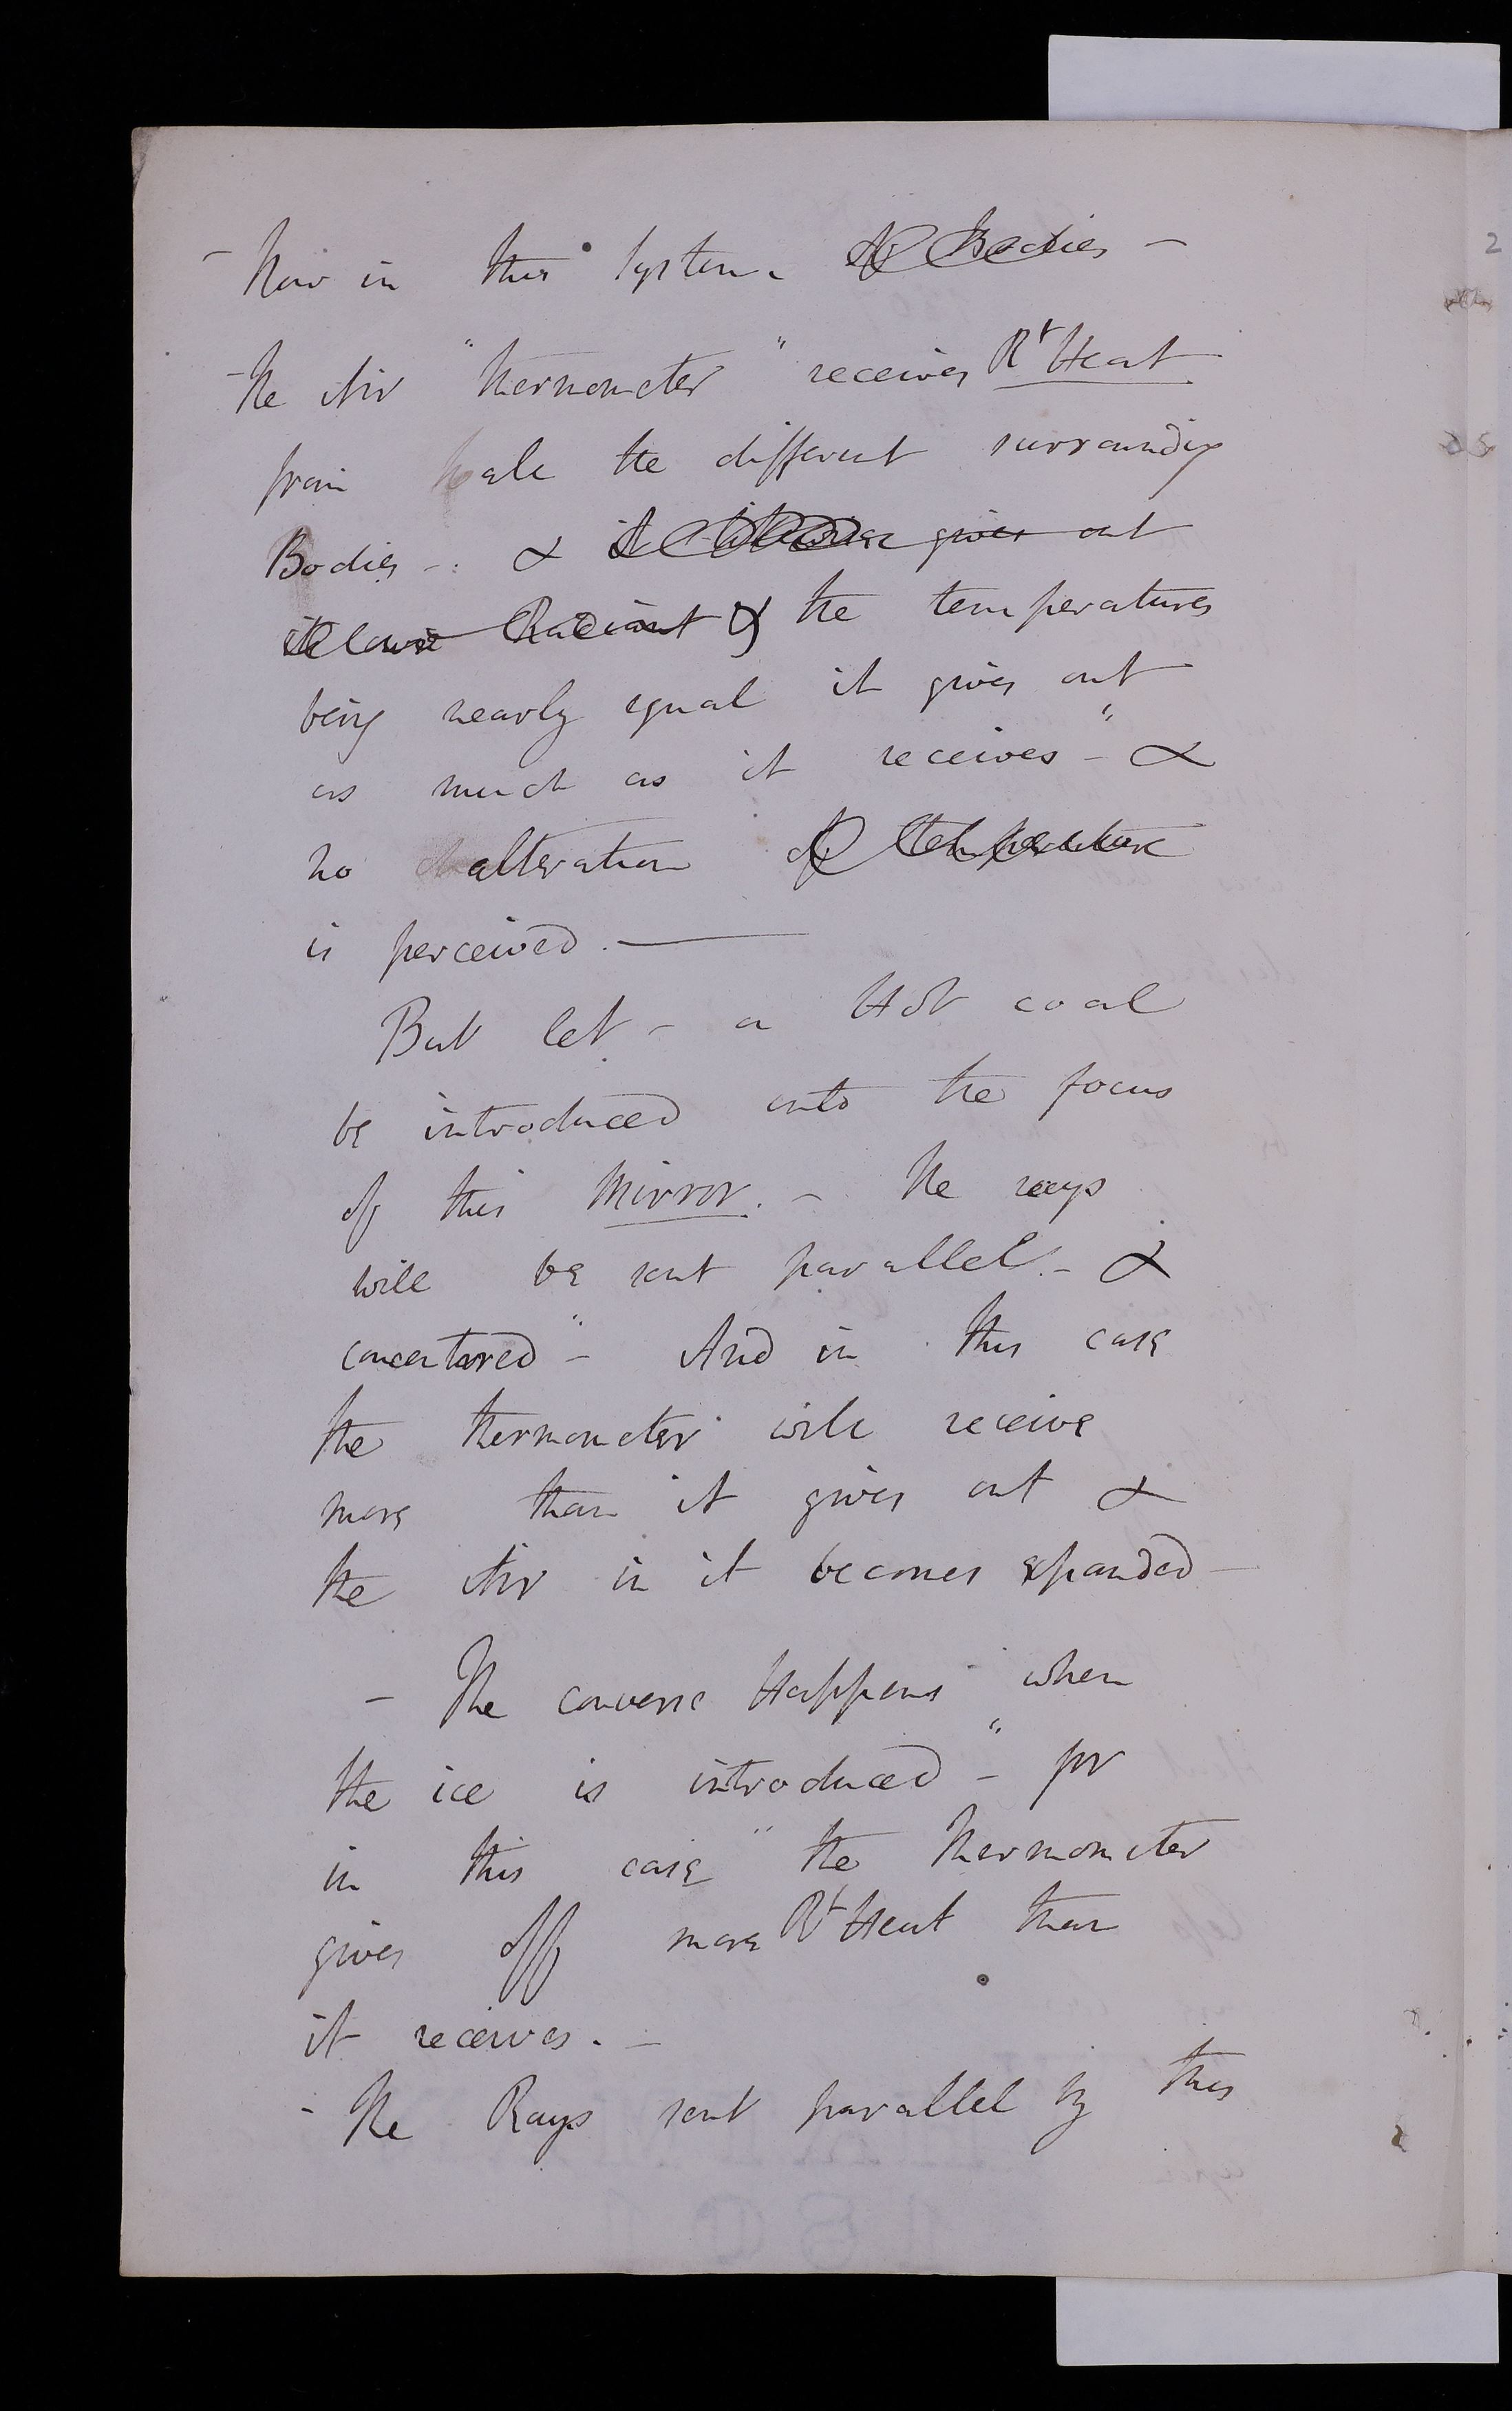 - Now in this System of Bodies -
- The Air "thermometer" receives Rt Heat
from all the different surrounding
Bodies - & it likewise gives out
its own Radiant & the temperatures
being nearly equal it gives out
as much as it receives" - &
no alteration of temperature
is perceived. —
But let - a Hot coal
be introduced into the focus
of this Mirror. - The rays
will be sent parallel. - &
concentered" - And in this case
the thermometer will receive
more than it gives out &
the Air in it becomes expanded -
- The converse Happens when
the ice is introduced" - for
in this case" the thermometer
gives off more Rt Heat than
it receives. -
- The Rays sent parallel by this
2